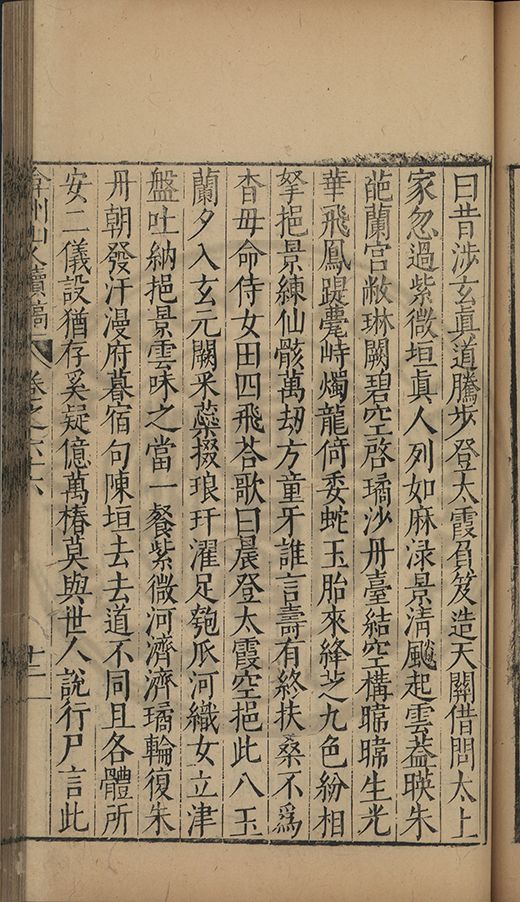 曰昔涉玄眞道騰步登太霞負笈造天關借問太上
家忽過紫微垣眞人列如麻淥景清飈起雲蓋暎朱
葩蘭宫敞琳闕碧空啓璚沙丹臺結空構暐暐生光
華飛鳳踶甍峙燭龍倚委蛇玉胎來絳芝九色紛相
拏挹景練仙骸萬劫方童牙誰言壽有終扶桒不爲
查毋命侍女田四飛荅歌曰晨登太霞空挹此八玉
蘭夕入玄元闕采蘂掇琅玕濯足匏瓜河織女立津
盤吐納挹景雲味之當一餐紫微河濟濟璚輪復朱
丹朝發汗漫府暮宿句陳垣去去道不同且各體所
安二儀設猶存奚疑億萬椿莫與世人說行尸言此
弇州山人續稿 卷之六十六 十二